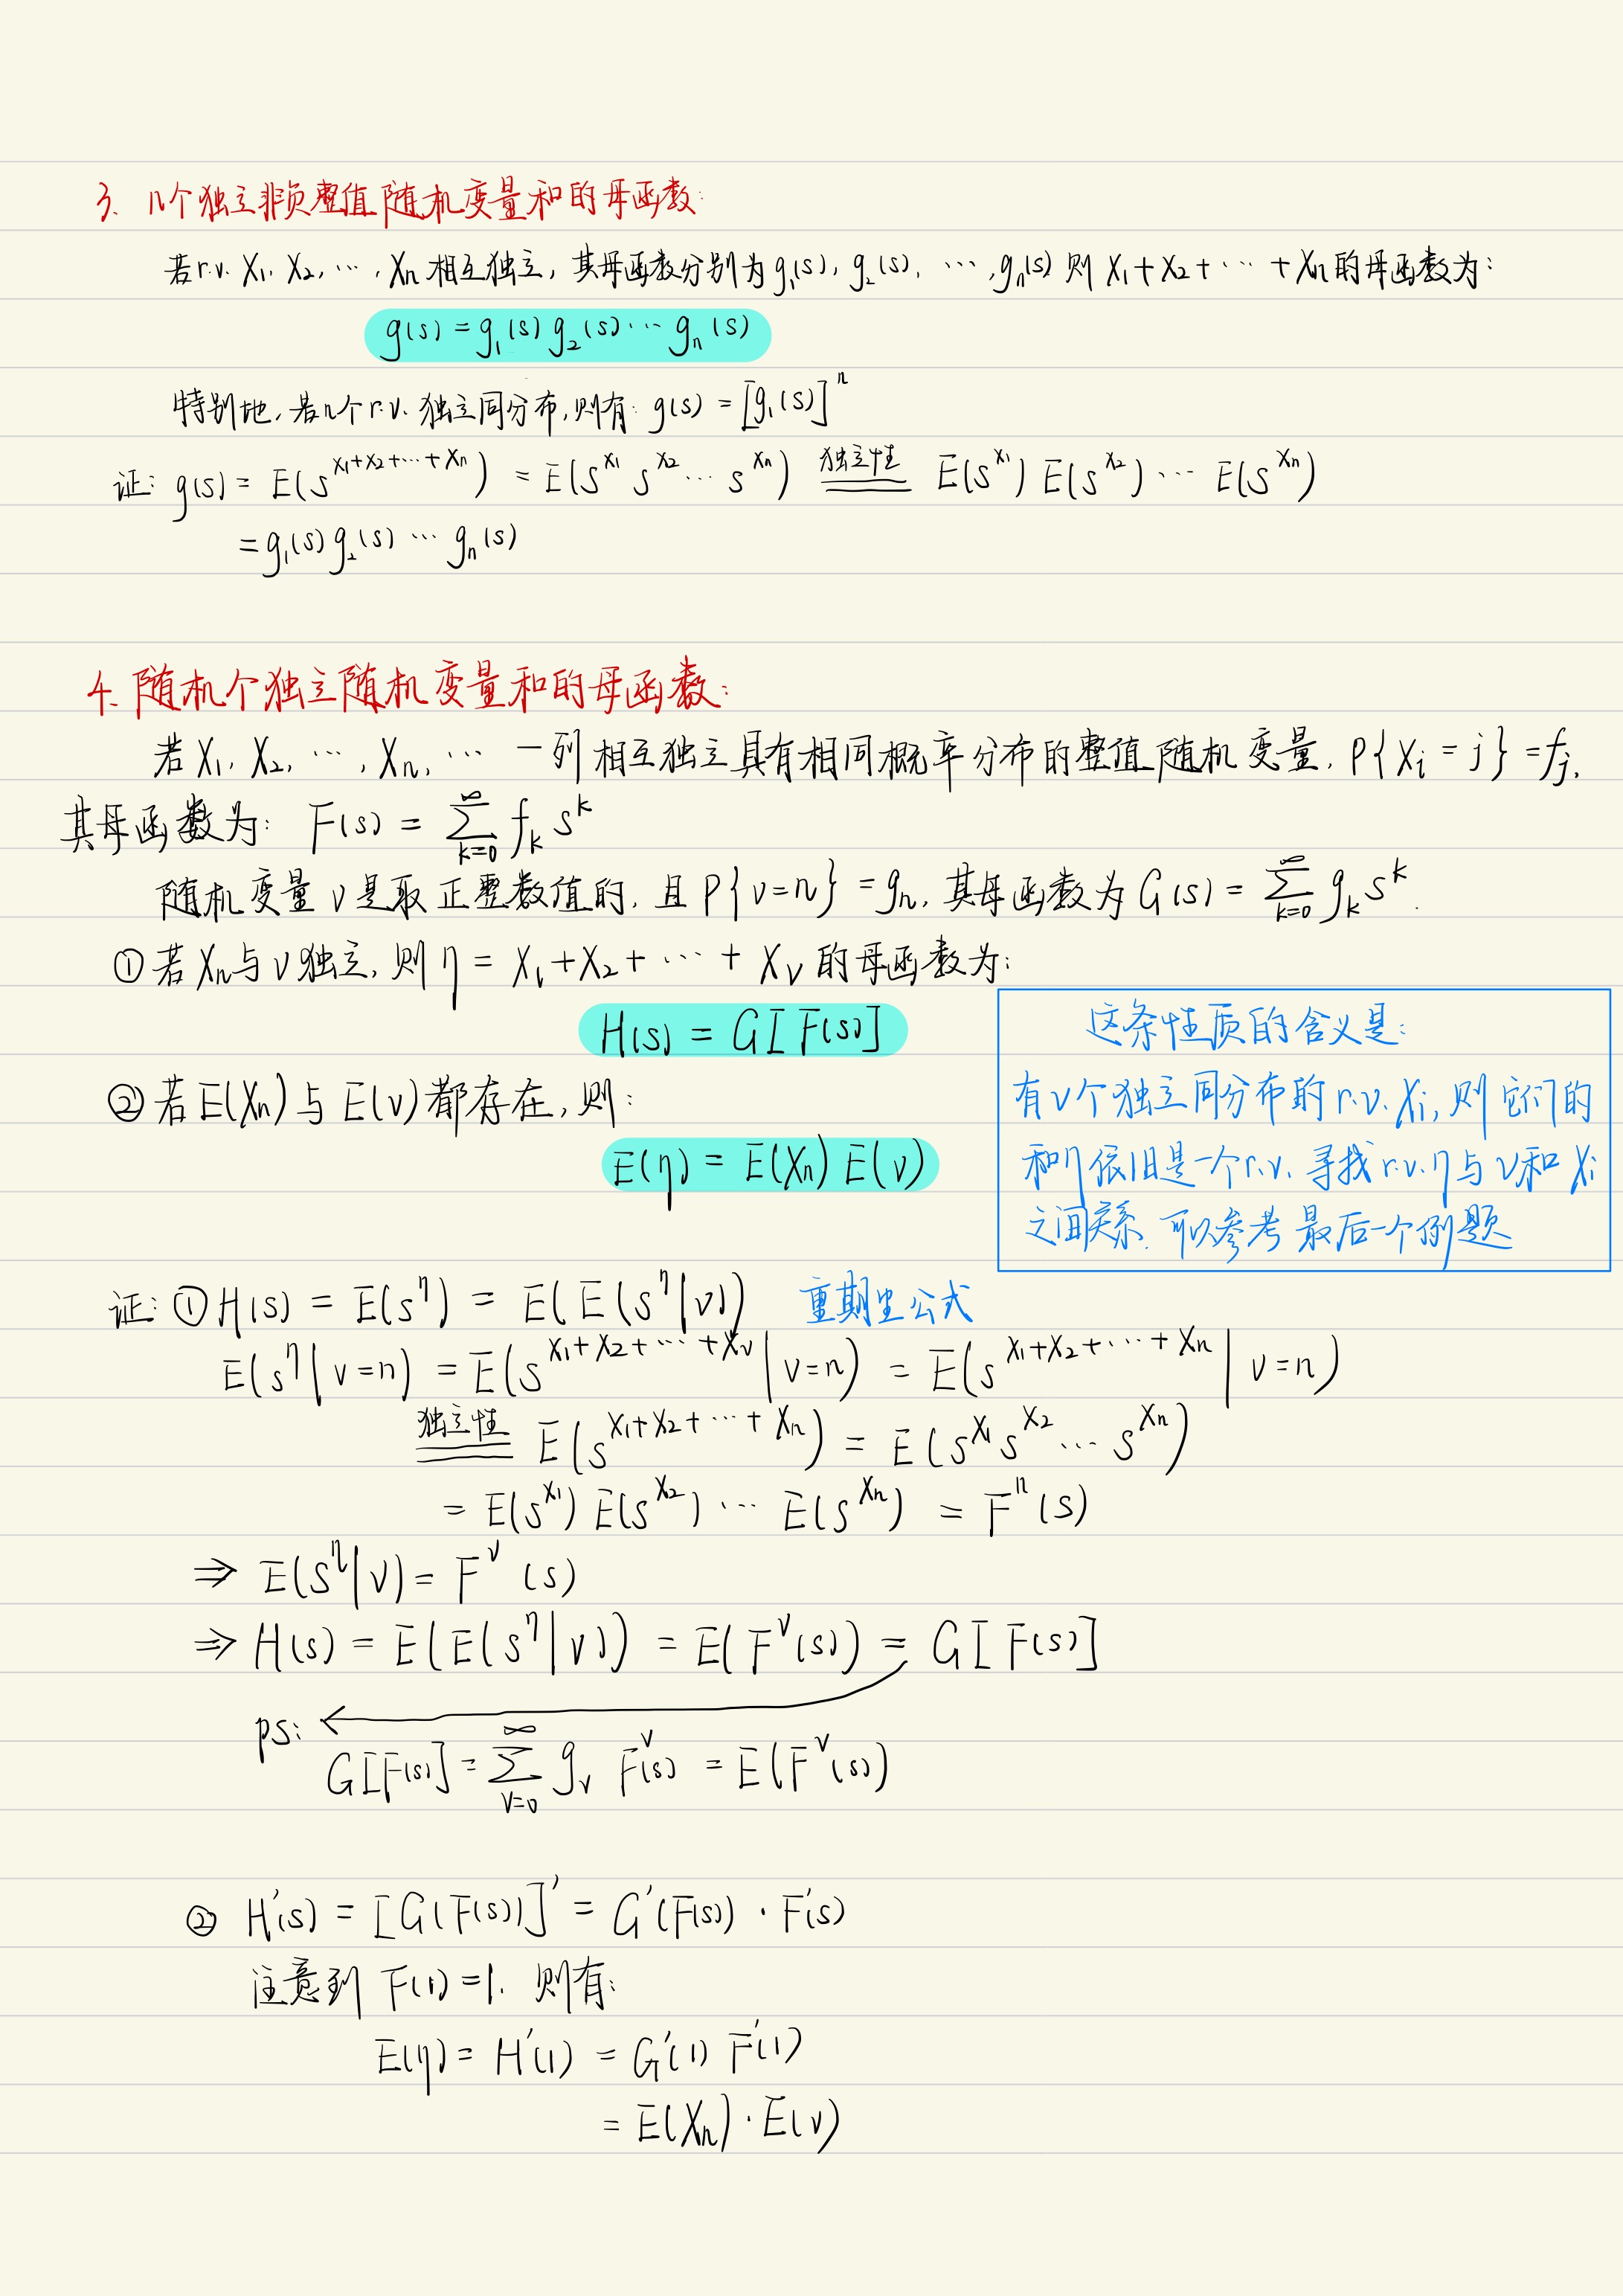 3. n个独立非负整值随机变量和的母函数:
若r.v. X₁, X₂, ⋯, Xₙ 相互独立, 其母函数分别为 g₁(s), g₂(s), ⋯, gₙ(s) 则 X₁+X₂+⋯+Xₙ 的母函数为:
g(s) = g₁(s) g₂(s) ⋯ gₙ(s)
特别地, 若n个r.v. 独立同分布, 则有: g(s) = [g₁(s)]ⁿ
证: g(s) = E(s^{X₁+X₂+⋯+Xₙ}) = E(s^{X₁} s^{X₂} ⋯ s^{Xₙ}) 独立性 ═ E(s^{X₁}) E(s^{X₂}) ⋯ E(s^{Xₙ})
= g₁(s) g₂(s) ⋯ gₙ(s)
4. 随机个独立随机变量和的母函数:
若 X₁, X₂, ⋯, Xₙ, ⋯ 一列相互独立具有相同概率分布的整值随机变量, P{Xᵢ = j} = fⱼ,
其母函数为: F(s) = ∑_{k=0}^{∞} fₖ sᵏ
随机变量 ν 是取正整数值的, 且 P{ν=n} = gₙ, 其母函数为 G(s) = ∑_{k=0}^{∞} gₖ sᵏ.
① 若 Xₙ 与 ν 独立, 则 η = X₁+X₂+⋯+X_ν 的母函数为:
H(s) = G[F(s)]
② 若 E(Xₙ) 与 E(ν) 都存在, 则:
E(η) = E(Xₙ) E(ν)
这条性质的含义是:
有ν个独立同分布的 r.v. Xᵢ, 则它们的
和η依旧是一个r.v. 寻找 r.v. η 与 ν 和 Xᵢ
之间关系. 可以参考最后一个例题
证: ① H(s) = E(s^η) = E(E(s^η|ν)) 重期望公式
E(s^η | ν=n) = E(s^{X₁+X₂+⋯+X_ν} | ν=n) = E(s^{X₁+X₂+⋯+Xₙ} | ν=n)
独立性 ═ E(s^{X₁+X₂+⋯+Xₙ}) = E(s^{X₁} s^{X₂} ⋯ s^{Xₙ})
= E(s^{X₁}) E(s^{X₂}) ⋯ E(s^{Xₙ}) = Fⁿ(s)
⇒ E(s^η|ν) = F^ν(s)
⇒ H(s) = E(E(s^η|ν)) = E(F^ν(s)) = G[F(s)]
ps:
G[F(s)] = ∑_{ν=0}^{∞} g_ν F^ν(s) = E(F^ν(s))
② H'(s) = [G(F(s))]' = G'(F(s)) · F'(s)
注意到 F(1)=1. 则有:
E(η) = H'(1) = G'(1) F'(1)
= E(Xₙ) · E(ν)